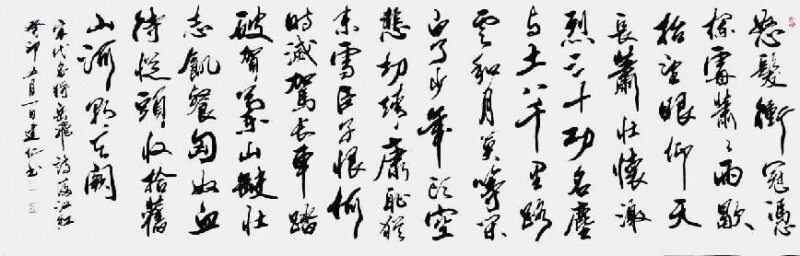 怒髮衝冠憑
欄處蕭〻雨歇
抬望眼仰天
長蕭壯懷激
烈三十功名塵
与土八千里路
雲和月莫等閑
白了少年頭空
悲切靖康恥猶
未雪臣子恨何
時滅駕長車踏
破賀蘭山缺壯
志飢餐匈奴血
待從頭收拾舊
山河朝天闕
宋代名將岳飛詩滿江紅
癸卯五月一日建仁書